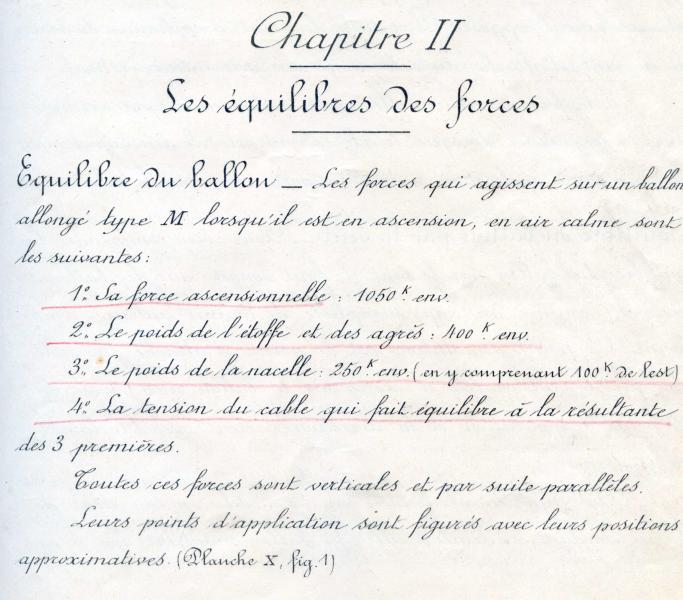 Chapitre II
Les équilibres des forces
Equilibre du ballon — Les forces qui agissent sur un ballon
allongé type M lorsqu'il est en ascension, en air calme sont
les suivantes :
1º Sa force ascensionnelle : 1050 K env.
2º Le poids de l'étoffe et des agrès : 400 K env.
3º Le poids de la nacelle : 250 K env. (en y comprenant 100 K de lest)
4º La tension du cable qui fait équilibre à la résultante
des 3 premières.
Toutes ces forces sont verticales et par suite parallèles.
Leurs points d'application sont figurés avec leurs positions
approximatives. (Planche X, fig. 1)